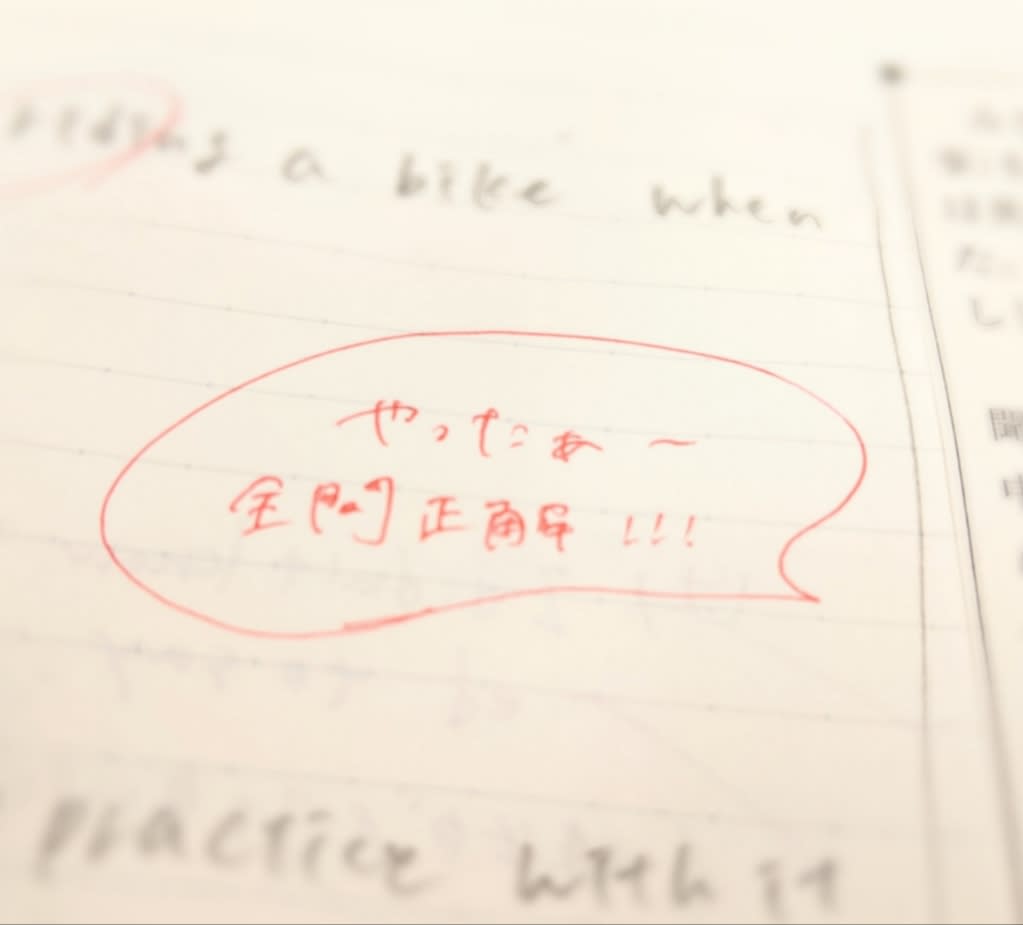 riding a bike when
やったぁ～
全問正解!!!
practice with it
た。
し
聞